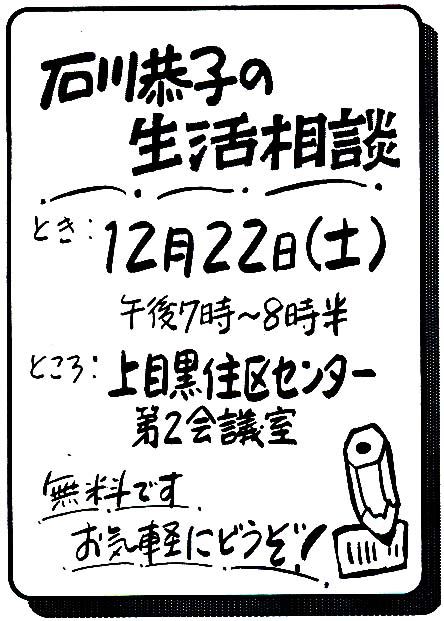 石川恭子の
生活相談
とき：12月22日(土)
午後7時〜8時半
ところ：上目黒住区センター
第2会議室
無料です
お気軽にどうぞ！